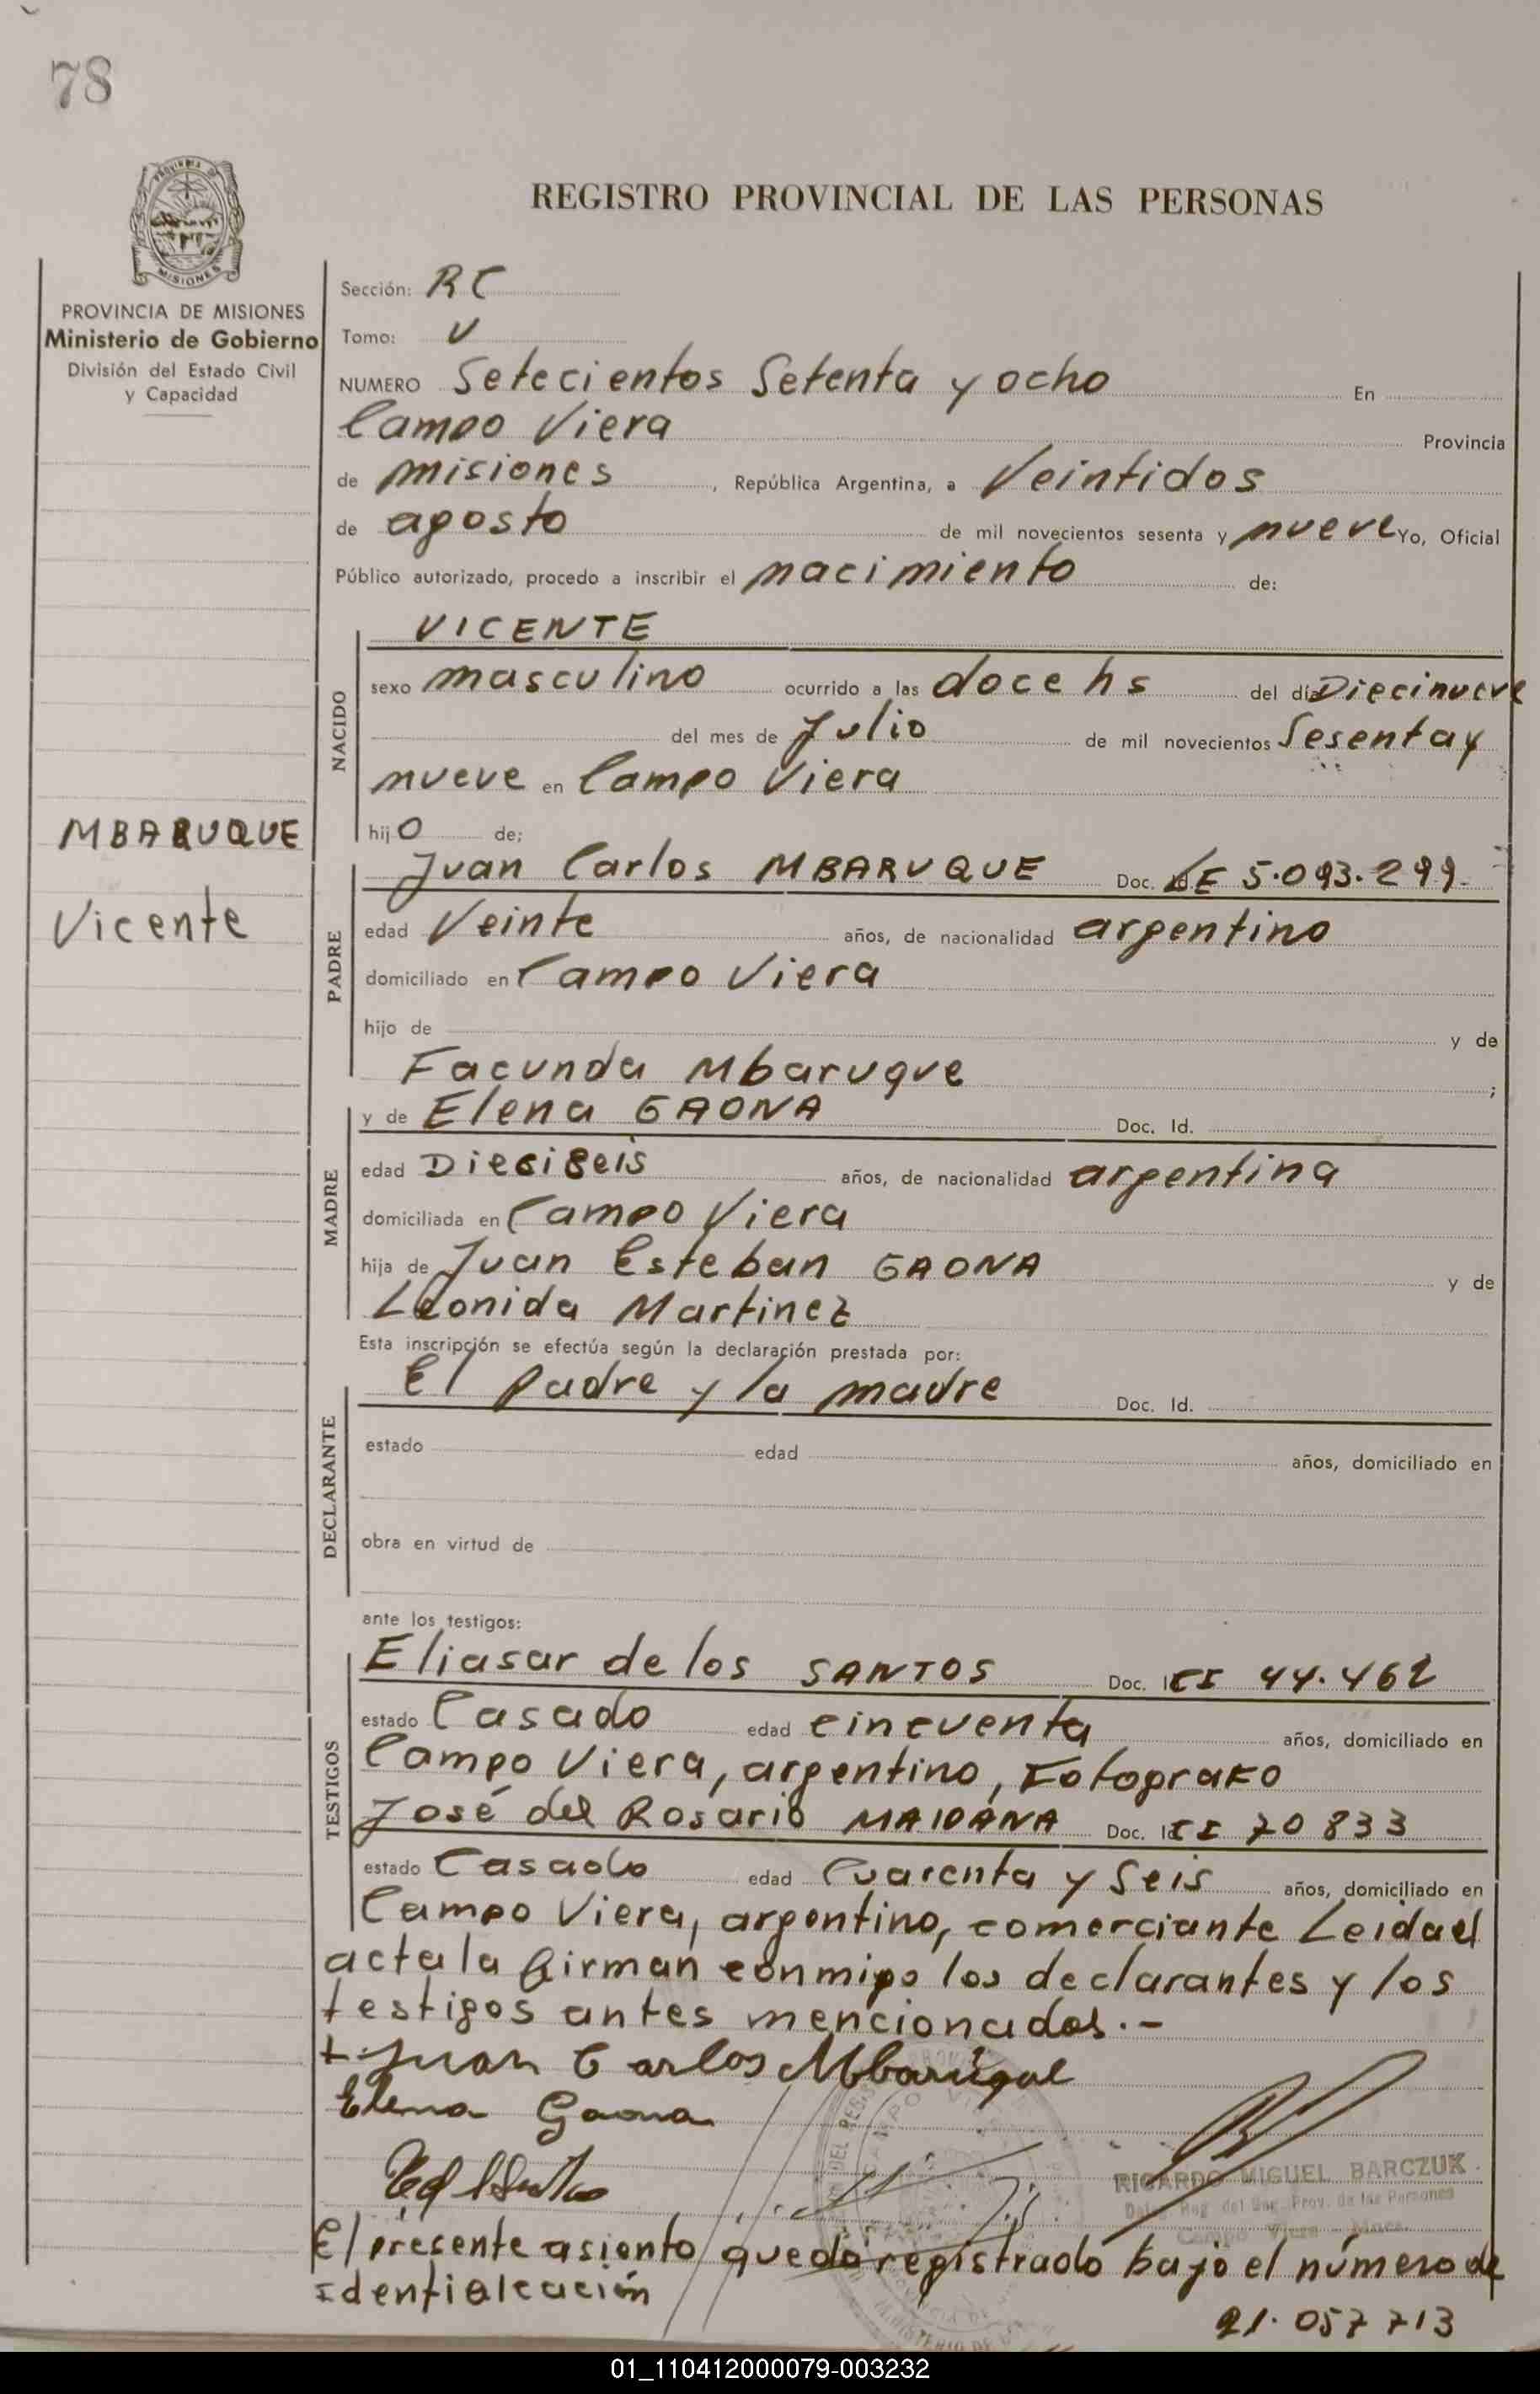 78
PROVINCIA DE MISIONES
Ministerio de Gobierno
División del Estado Civil
y Capacidad
MBARUQUE
Vicente
REGISTRO PROVINCIAL DE LAS PERSONAS
Sección: RC
Tomo: V
NUMERO Setecientos Setenta y ocho En
Campo Viera Provincia
de misiones, República Argentina, a Veintidos
de agosto de mil novecientos sesenta y nueve Yo, Oficial
Público autorizado, procedo a inscribir el nacimiento de:
NACIDO
VICENTE
sexo masculino ocurrido a las doce hs del día Diecinueve
del mes de Julio de mil novecientos Sesenta y
nueve en Campo Viera
hijo de:
PADRE
Juan Carlos MBARUQUE Doc. LE 5.093.299.
edad Veinte años, de nacionalidad argentino
domiciliado en Campo Viera
hijo de y de
Facunda Mbaruque ;
MADRE
y de Elena GAONA Doc. Id.
edad Diesiseis años, de nacionalidad argentina
domiciliada en Campo Viera
hija de Juan Esteban GAONA y de
Leonida Martinez
Esta inscripción se efectúa según la declaración prestada por:
DECLARANTE
El padre y la madre Doc. Id.
estado edad años, domiciliado en
obra en virtud de
ante los testigos:
TESTIGOS
Eliasar de los SANTOS Doc. CI 44.462
estado Casado edad cincuenta años, domiciliado en
Campo Viera, argentino, Fotografo
José del Rosario MAIDANA Doc. CI 70833
estado Casado edad Cuarenta y Seis años, domiciliado en
Campo Viera, argentino, comerciante Leida el
acta la firman conmigo los declarantes y los
testigos antes mencionados.-
Juan Carlos Mbaruque
Elena Gaona
RICARDO MIGUEL BARCZUK
Deleg. Reg. del Reg. Prov. de las Personas
Campo Viera - Mnes.
El presente asiento queda registrado bajo el número de
identificación
21.057713
01_110412000079-003232